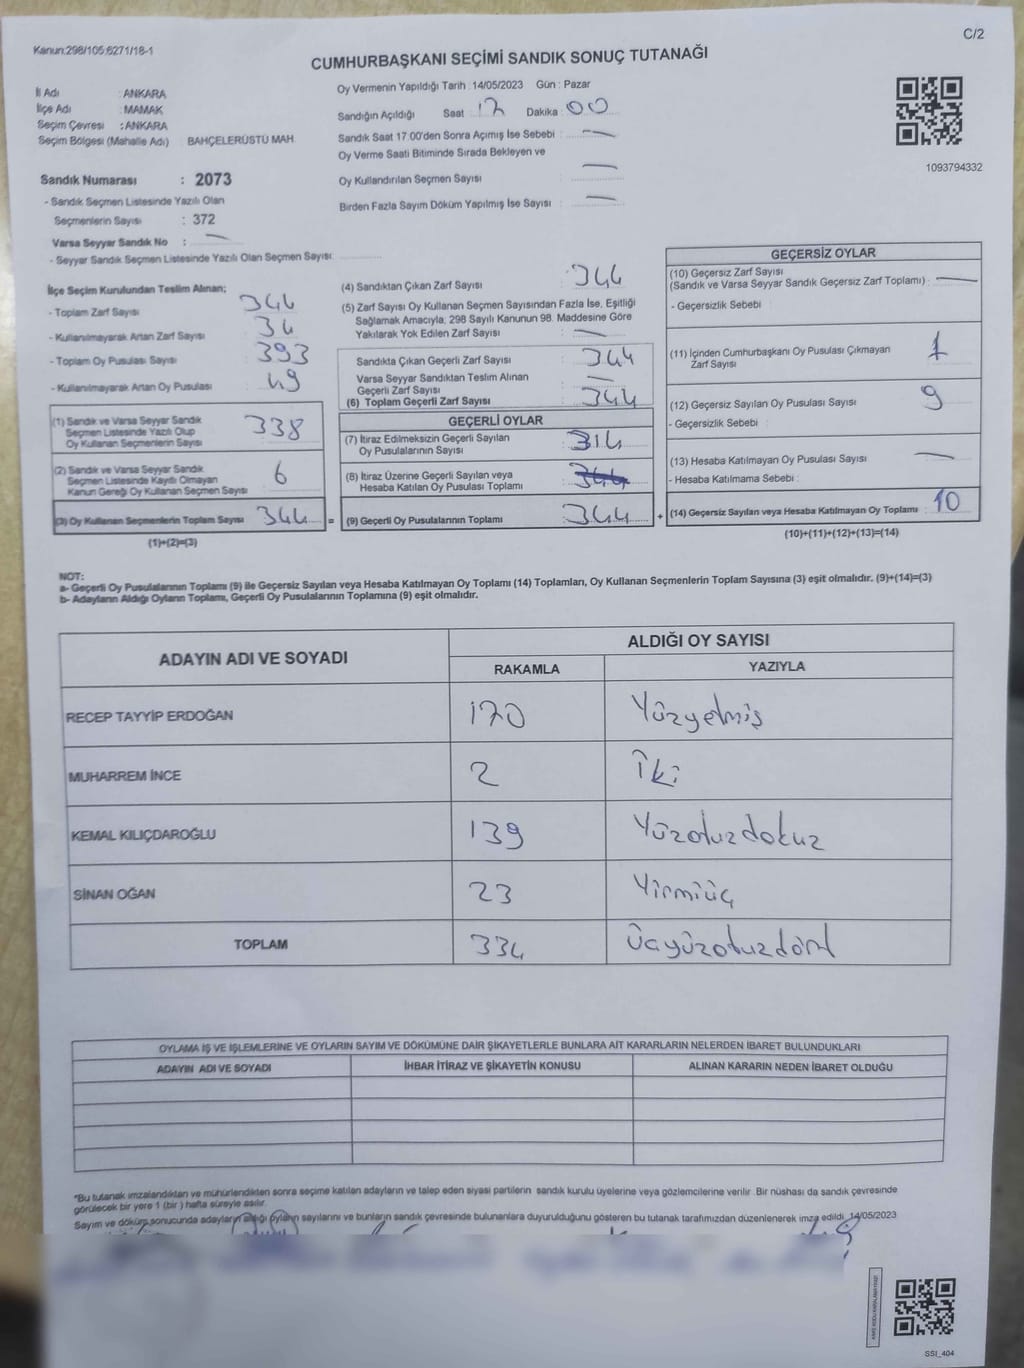 Kanun:298/105,6271/18-1
C/2
CUMHURBAŞKANI SEÇİMİ SANDIK SONUÇ TUTANAĞI
İl Adı : ANKARA
İlçe Adı : MAMAK
Seçim Çevresi : ANKARA
Seçim Bölgesi (Mahalle Adı) : BAHÇELERÜSTÜ MAH.
Sandık Numarası : 2073
- Sandık Seçmen Listesinde Yazılı Olan
Seçmenlerin Sayısı : 372
Varsa Seyyar Sandık No : —
- Seyyar Sandık Seçmen Listesinde Yazılı Olan Seçmen Sayısı:
Oy Vermenin Yapıldığı Tarih : 14/05/2023 Gün : Pazar
Sandığın Açıldığı Saat 17 Dakika 00
Sandık Saat 17.00'den Sonra Açılmış İse Sebebi : —
Oy Verme Saati Bitiminde Sırada Bekleyen ve
Oy Kullandırılan Seçmen Sayısı : —
Birden Fazla Sayım Döküm Yapılmış İse Sayısı : —
1093794332
İlçe Seçim Kurulundan Teslim Alınan;
- Toplam Zarf Sayısı 344
- Kullanılmayarak Artan Zarf Sayısı 34
- Toplam Oy Pusulası Sayısı 393
- Kullanılmayarak Artan Oy Pusulası 49
(1) Sandık ve Varsa Seyyar Sandık
Seçmen Listesinde Yazılı Olup
Oy Kullanan Seçmenlerin Sayısı 338
(2) Sandık ve Varsa Seyyar Sandık
Seçmen Listesinde Kayıtlı Olmayan
Kanun Gereği Oy Kullanan Seçmen Sayısı 6
(3) Oy Kullanan Seçmenlerin Toplam Sayısı 344 =
(1)+(2)=(3)
(4) Sandıktan Çıkan Zarf Sayısı : 344
(5) Zarf Sayısı Oy Kullanan Seçmen Sayısından Fazla İse, Eşitliği
Sağlamak Amacıyla; 298 Sayılı Kanunun 98. Maddesine Göre
Yakılarak Yok Edilen Zarf Sayısı : —
Sandıkta Çıkan Geçerli Zarf Sayısı : 344
Varsa Seyyar Sandıktan Teslim Alınan
Geçerli Zarf Sayısı : —
(6) Toplam Geçerli Zarf Sayısı : 344
GEÇERLİ OYLAR
(7) İtiraz Edilmeksizin Geçerli Sayılan
Oy Pusulalarının Sayısı : 314
(8) İtiraz Üzerine Geçerli Sayılan veya
Hesaba Katılan Oy Pusulası Toplamı : 344
(9) Geçerli Oy Pusulalarının Toplamı : 344 +
GEÇERSİZ OYLAR
(10) Geçersiz Zarf Sayısı
(Sandık ve Varsa Seyyar Sandık Geçersiz Zarf Toplamı) : —
- Geçersizlik Sebebi :
(11) İçinden Cumhurbaşkanı Oy Pusulası Çıkmayan
Zarf Sayısı : 1
(12) Geçersiz Sayılan Oy Pusulası Sayısı : 9
- Geçersizlik Sebebi :
(13) Hesaba Katılmayan Oy Pusulası Sayısı : —
- Hesaba Katılmama Sebebi :
(14) Geçersiz Sayılan veya Hesaba Katılmayan Oy Toplamı : 10
(10)+(11)+(12)+(13)=(14)
NOT:
a- Geçerli Oy Pusulalarının Toplamı (9) ile Geçersiz Sayılan veya Hesaba Katılmayan Oy Toplamı (14) Toplamları, Oy Kullanan Seçmenlerin Toplam Sayısına (3) eşit olmalıdır. (9)+(14)=(3)
b- Adayların Aldığı Oyların Toplamı, Geçerli Oy Pusulalarının Toplamına (9) eşit olmalıdır.
ADAYIN ADI VE SOYADI
ALDIĞI OY SAYISI
RAKAMLA YAZIYLA
RECEP TAYYİP ERDOĞAN 170 Yüzyetmiş
MUHARREM İNCE 2 İki
KEMAL KILIÇDAROĞLU 139 Yüzotuzdokuz
SİNAN OĞAN 23 Yirmiüç
TOPLAM 334 Üçyüzotuzdört
OYLAMA İŞ VE İŞLEMLERİNE VE OYLARIN SAYIM VE DÖKÜMÜNE DAİR ŞİKAYETLERLE BUNLARA AİT KARARLARIN NELERDEN İBARET BULUNDUKLARI
ADAYIN ADI VE SOYADI İHBAR İTİRAZ VE ŞİKAYETİN KONUSU ALINAN KARARIN NEDEN İBARET OLDUĞU
*Bu tutanak imzalandıktan ve mühürlendikten sonra seçime katılan adayların ve talep eden siyasi partilerin sandık kurulu üyelerine veya gözlemcilerine verilir. Bir nüshası da sandık çevresinde
görülecek bir yere 1 (bir ) hafta süreyle asılır.
Sayım ve döküm sonucunda adayların aldığı oyların sayılarını ve bunların sandık çevresinde bulunanlara duyurulduğunu gösteren bu tutanak tarafımızdan düzenlenerek imza edildi. 14/05/2023
SSI_404